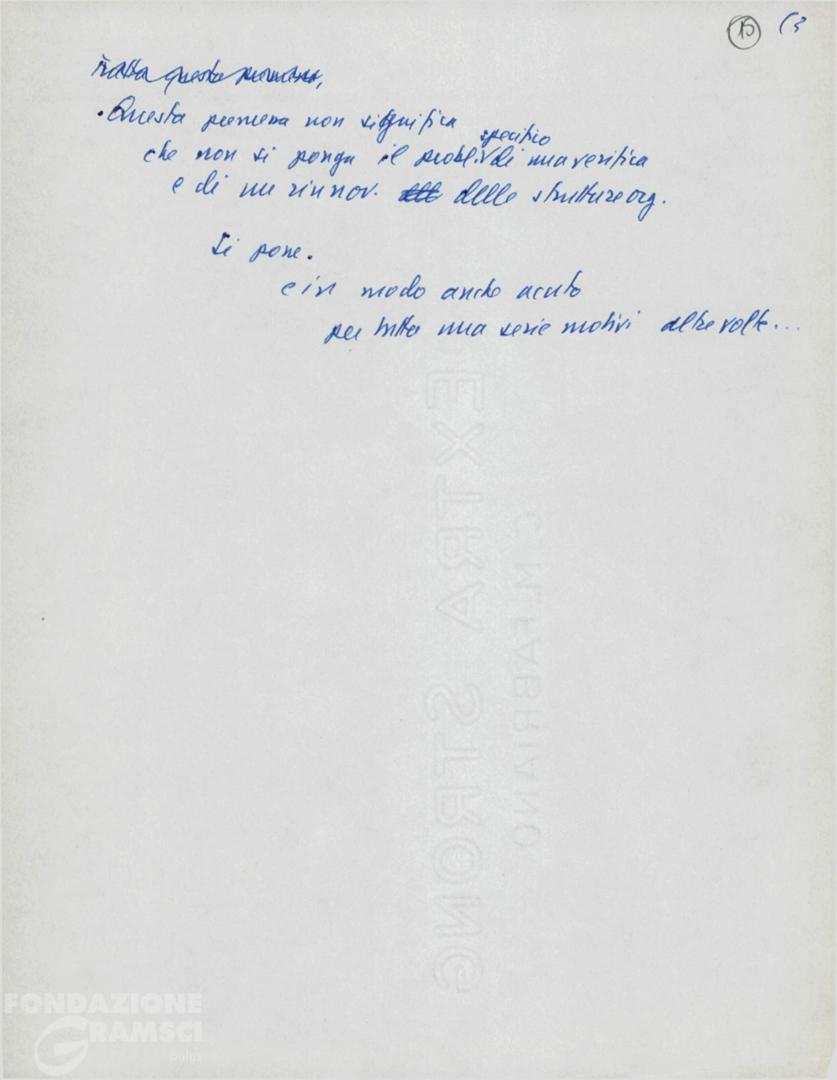 15 (3
Fatta questa premessa,
• Questa premessa non significa
specifico
che non si ponga il probl. di una verifica
e di un rinnov. delle strutture org.
Si pone.
e in modo anche acuto
per tutta una serie motivi altre volte...
EXTRA STRONG
C.M. FABRIANO
FONDAZIONE
GRAMSCI
onlus